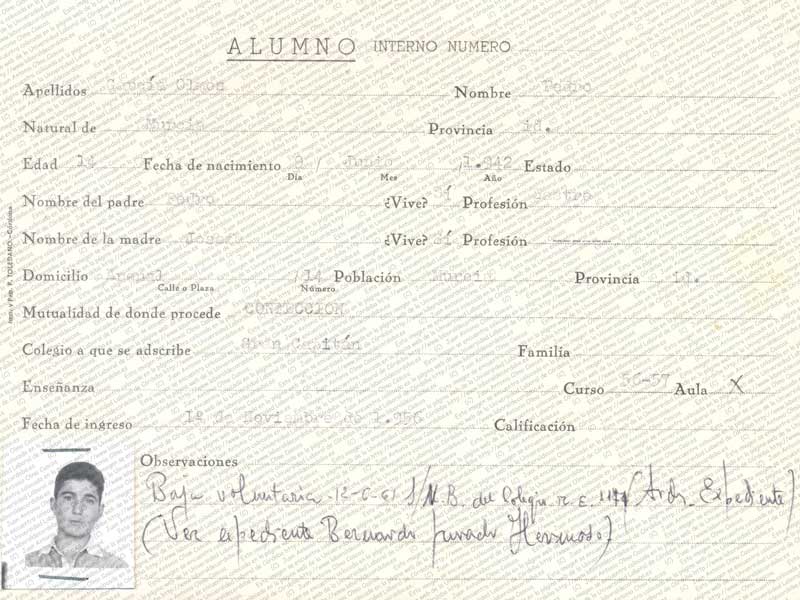 ALUMNO INTERNO NUMERO
Apellidos García Olmos Nombre Pedro
Natural de Murcia Provincia id.
Edad 14 Fecha de nacimiento 9 / Junio /1.942 Estado
Día Mes Año
Nombre del padre Pedro ¿Vive? Sí Profesión Sastre
Nombre de la madre Josefa ¿Vive? Sí Profesión -------
Domicilio /14 Población Murcia Provincia id.
Calle o Plaza Número
Mutualidad de donde procede CONFECCION
Colegio a que se adscribe Gran Capitán Familia
Enseñanza Curso 56-57 Aula X
Fecha de ingreso 1º de Noviembre de 1.956 Calificación
Observaciones
Baja voluntaria -12-6-61 S/N.B. del Colegio (Archi. Expediente)
(Ver expediente Bernardo Jurado Hermoso)
Imp. y Pap. F. TOLEDANO.-Córdoba